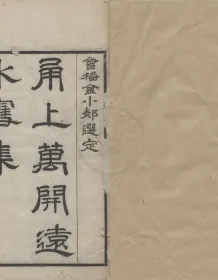 會稽金小郝選定
甬上萬開遠
冰雪集